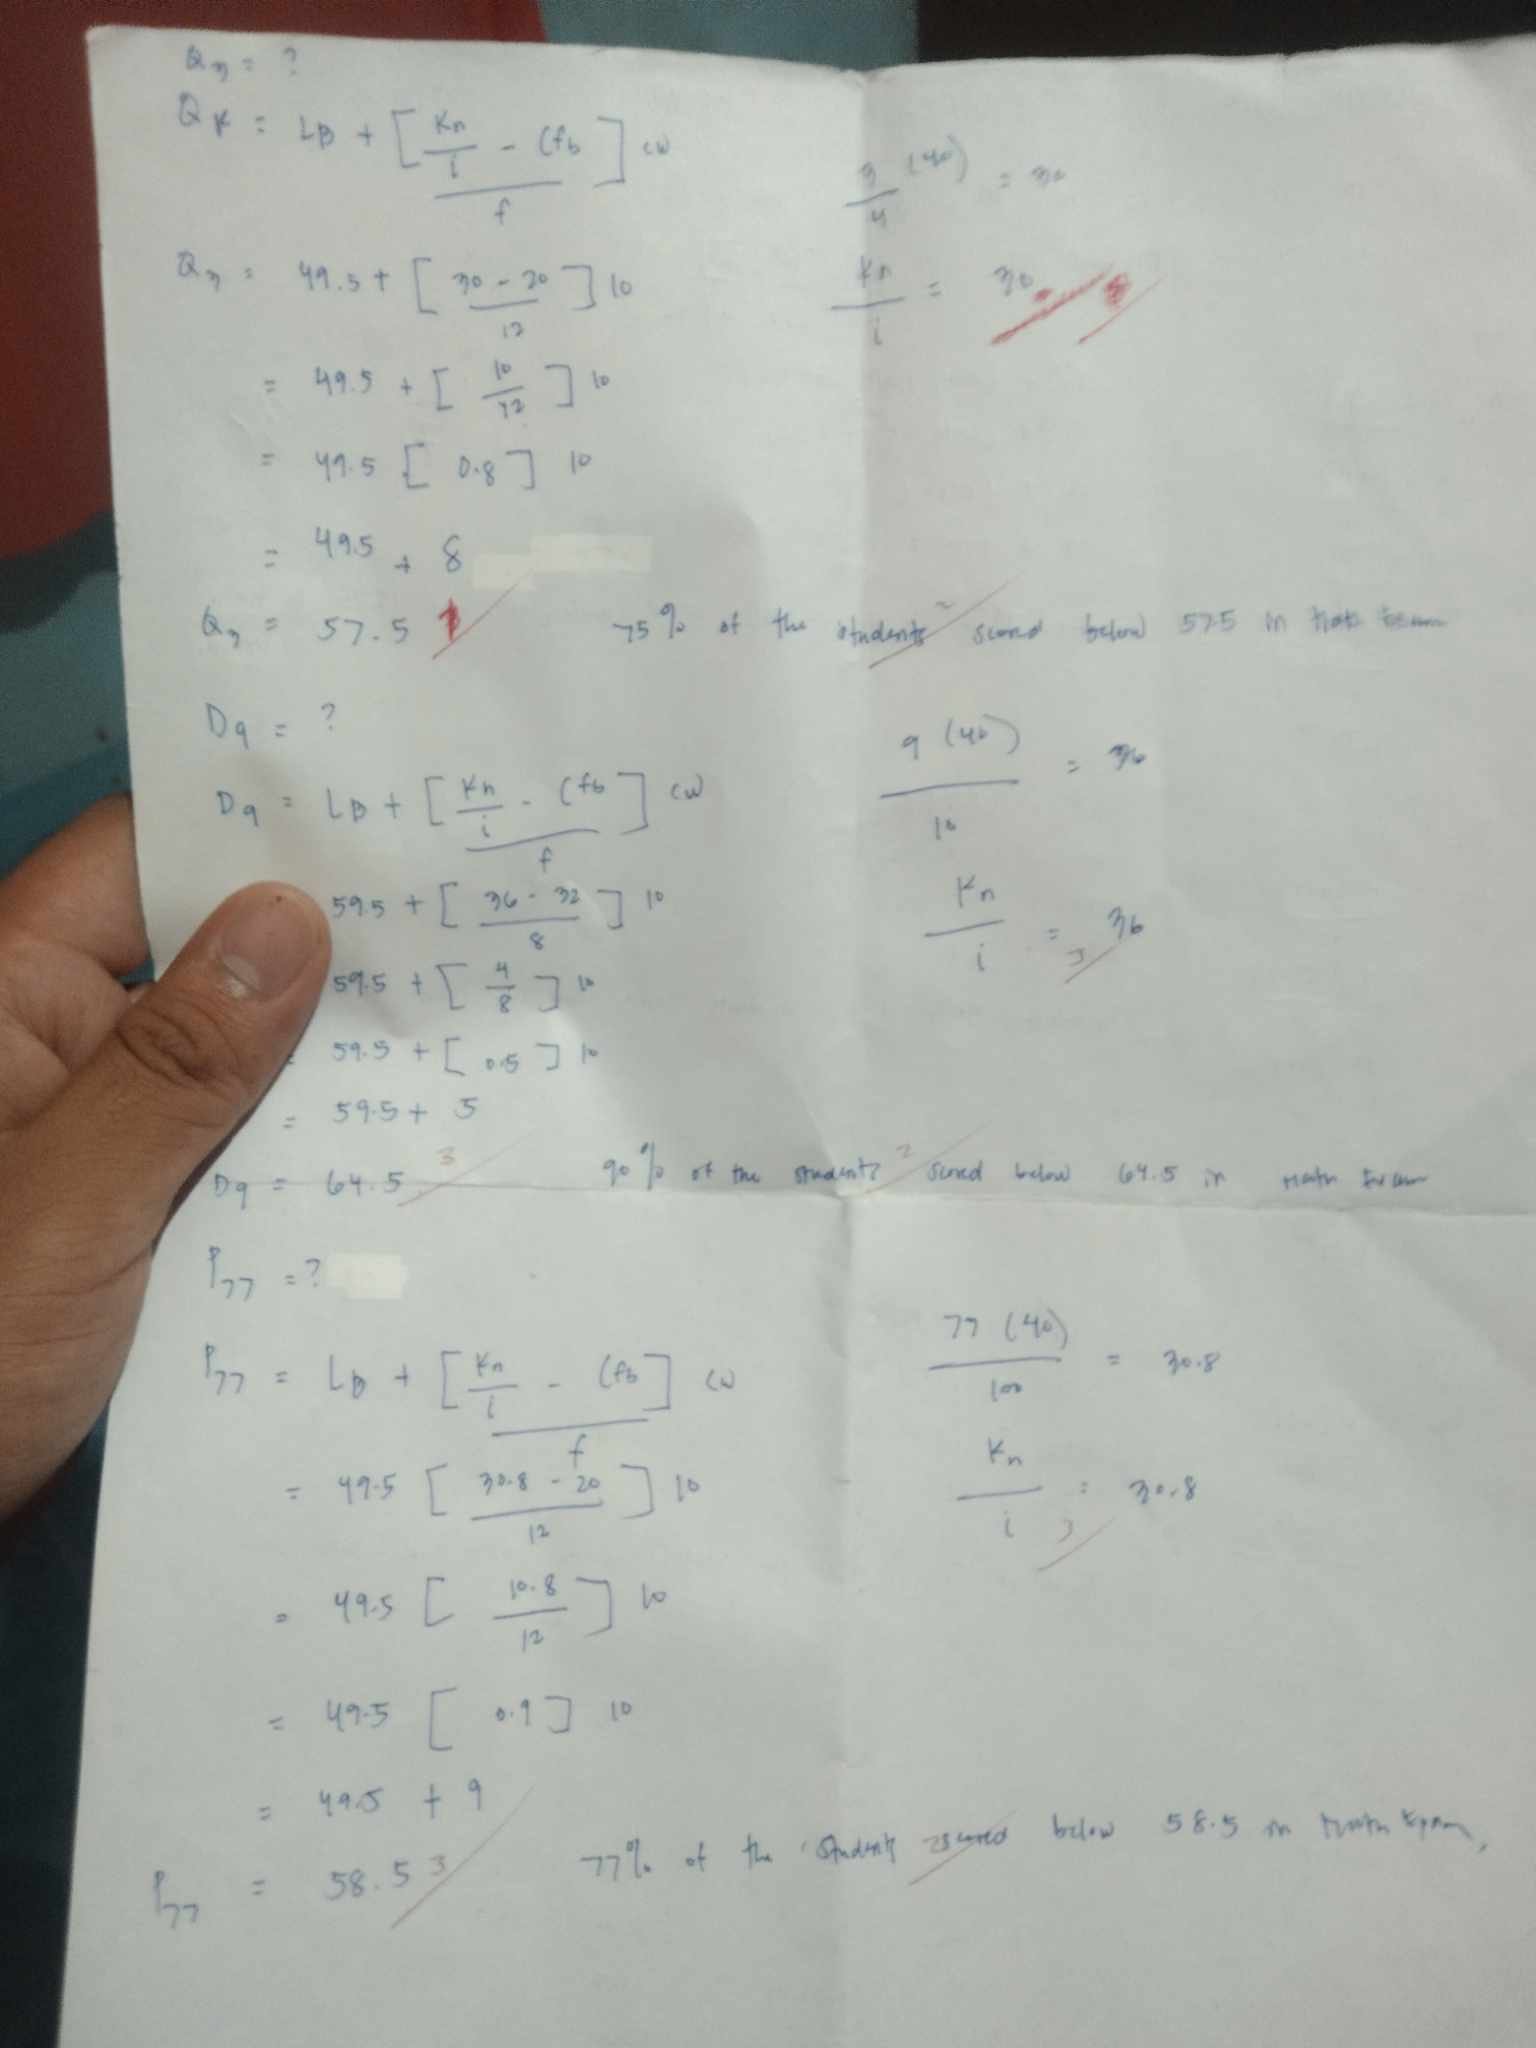 Q3 = ?
QK = LB + [ Kn/i - (fb / f ] cw
3/4 (40) = 30
Q3 = 49.5 + [ 30 - 20 / 12 ] 10
Kn/i = 30
= 49.5 + [ 10/12 ] 10
= 49.5 [ 0.8 ] 10
= 49.5 + 8
Q3 = 57.5 75% of the students scored below 57.5 in
2
D9 = ?
9 (40) / 10 = 36
D9 = LB + [ Kn/i - (fb / f ] cw
59.5 + [ 36 - 32 / 8 ] 10
Kn/i = 36
3
59.5 + [ 4/8 ] 10
= 59.5 + [ 0.5 ] 10
= 59.5 + 5
D9 = 64.5 3 90% of the students 2 scored below 64.5 in Math Exam
P77 = ?
77 (40) / 100 = 30.8
P77 = LB + [ Kn/i - (fb / f ] cw
= 49.5 [ 30.8 - 20 / 12 ] 10
Kn/i = 30.8
3
= 49.5 [ 10.8 / 12 ] 10
= 49.5 [ 0.9 ] 10
= 49.5 + 9
P77 = 58.5 3 77% of the students 2 scored below 58.5 in Math Exam.